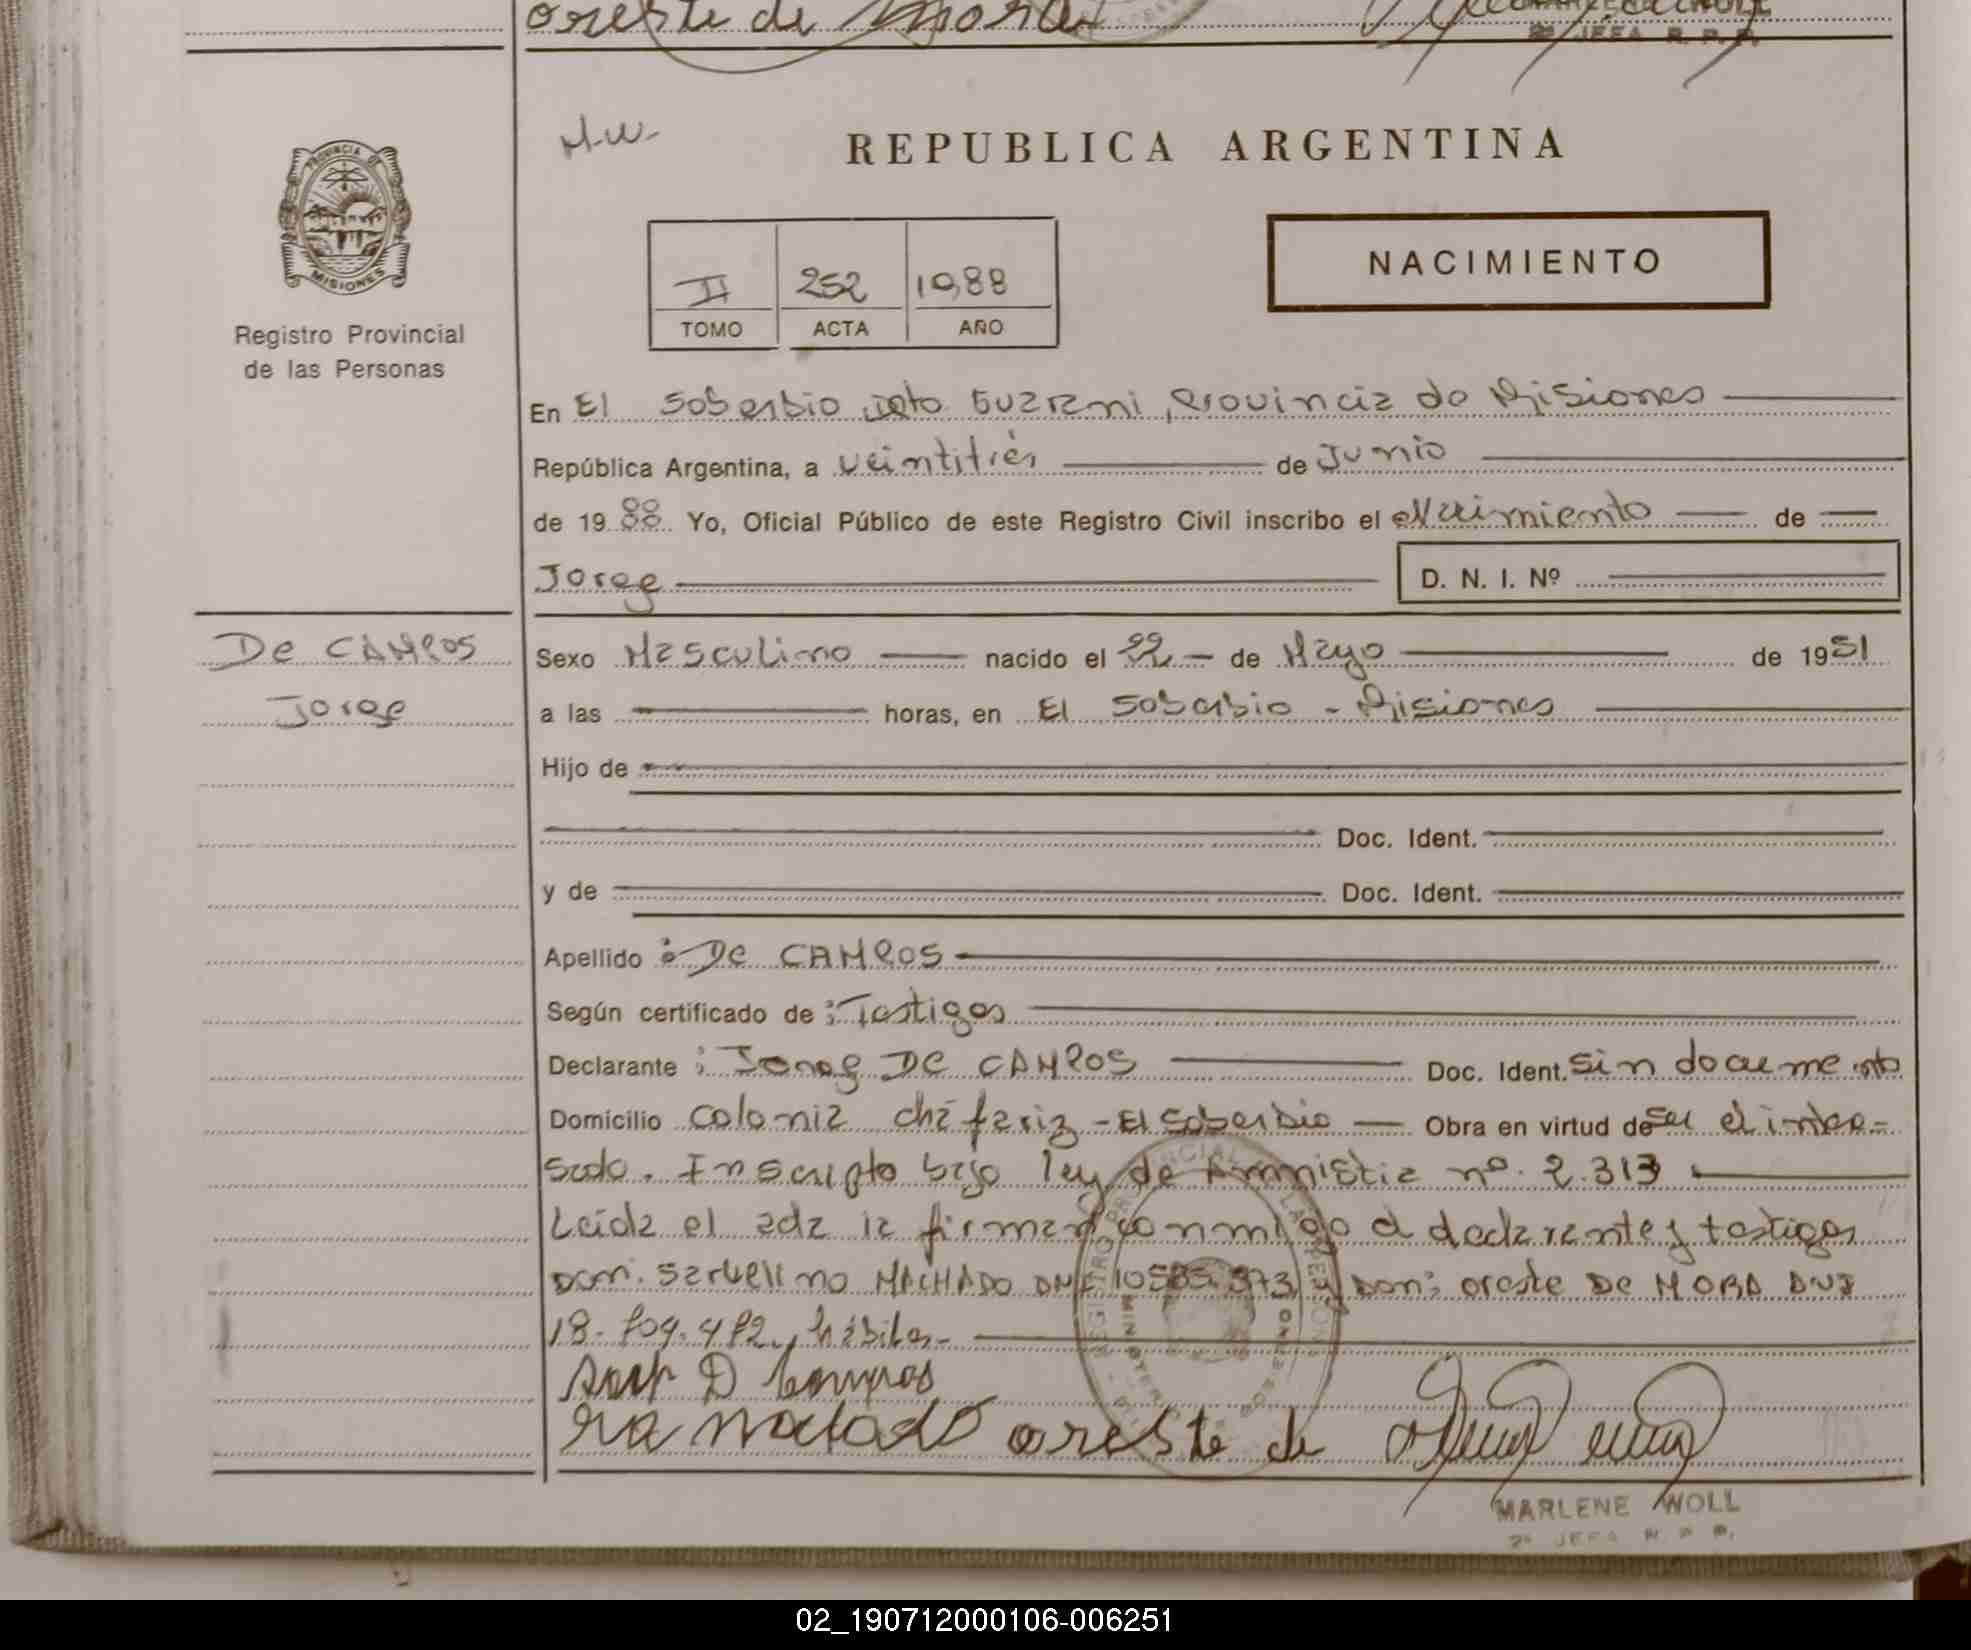 oreste de Mora
2ª JEFA R. P. P.
M.W.
REPUBLICA ARGENTINA
PROVINCIA DE MISIONES
Registro Provincial
de las Personas
NACIMIENTO
II 252 1988
TOMO ACTA AÑO
En El Soberbio Dto Guarani, Provincia de Misiones
República Argentina, a veintitrés de Junio
de 1988 Yo, Oficial Público de este Registro Civil inscribo el Nacimiento de
Jorge D. N. I. Nº
De CAMPOS
Jorge
Sexo Masculino nacido el 22 de Mayo de 1951
a las horas, en El Soberbio - Misiones
Hijo de
Doc. Ident.
y de Doc. Ident.
Apellido : De CAMPOS
Según certificado de : Testigos
Declarante : Jorge DE CAMPOS Doc. Ident. sin documento
Domicilio Colonia chafariz - El Soberbio Obra en virtud de ser el intere-
sado. Inscripto bajo ley de Amnistia nº 2.313
Leida el acta la firman conmigo el declarante y testigos
Don: Sarvelino MACHADO DNI 10.585.373 y Don: oreste DE MORA DNI
18. hábiles.-
D Campos
oreste de
MARLENE WOLL
2ª JEFA R. P. P.
02_190712000106-006251